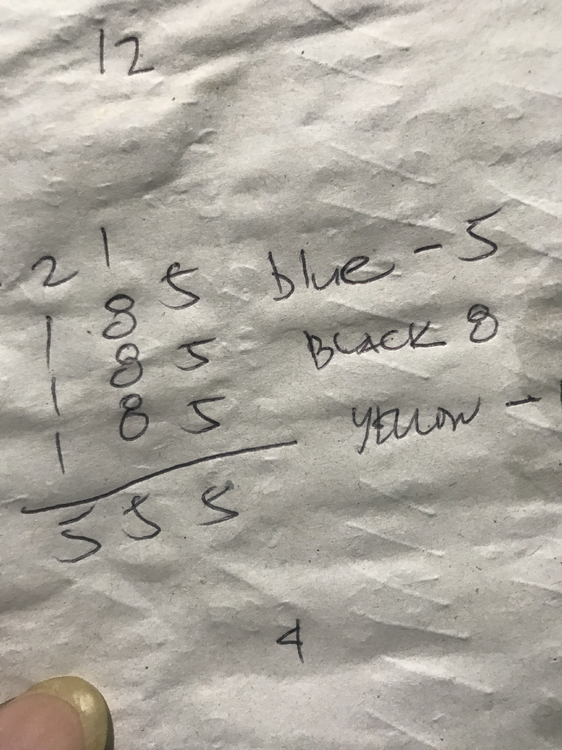 12
2 1
1 8 5 blue - 5
1 8 5 BLACK 8
1 8 5 YELLOW -
5 5 5
4